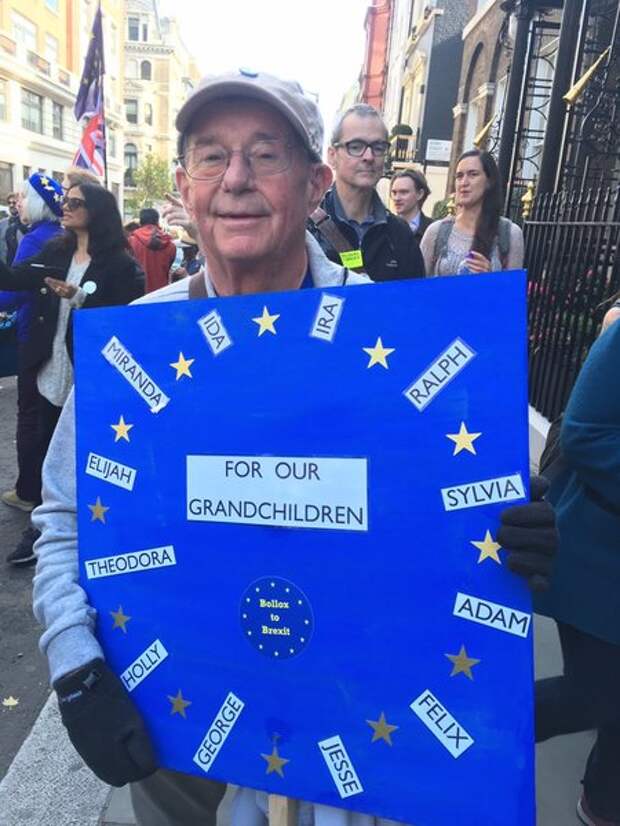 IDA
IRA
MIRANDA
RALPH
ELIJAH
FOR OUR
GRANDCHILDREN
SYLVIA
THEODORA
Bollox
to
Brexit
ADAM
HOLLY
GEORGE
JESSE
FELIX